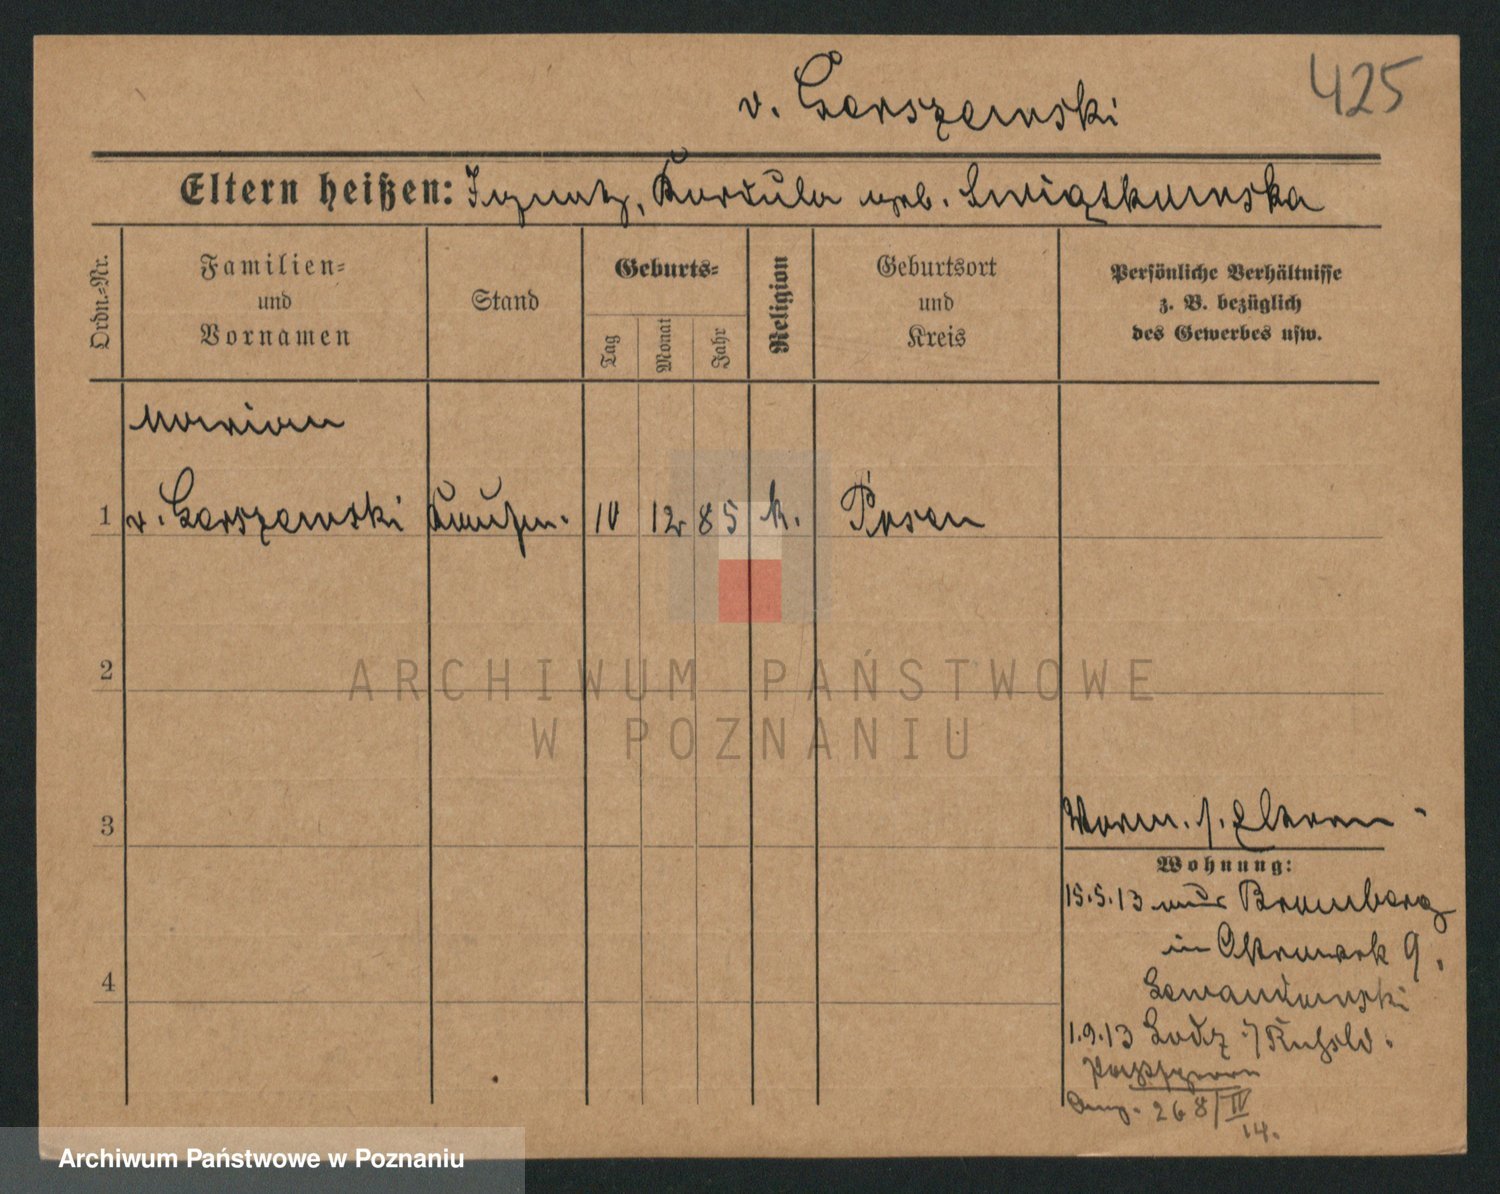 425
v. Gerszewski
Eltern heißen: Ignatz, Kordula geb. Swiątkowska
Ordn.-Nr.
Familien-
und
Vornamen
Stand
Geburts-
Tag
Monat
Jahr
Religion
Geburtsort
und
Kreis
Persönliche Verhältnisse
z. B. bezüglich
des Gewerbes usw.
Marian
1 v. Gerszewski Kaufm. 10 12 85 k. Posen
2
3
4
Worm. s. Eltern
Wohnung:
15.5.13 aus Bromberg
in Ostrowek 9,
Lewandowski
1.9.13 Lodz i/ Rußld.
268/IV
14.
ARCHIWUM PAŃSTWOWE
W POZNANIU
Archiwum Państwowe w Poznaniu